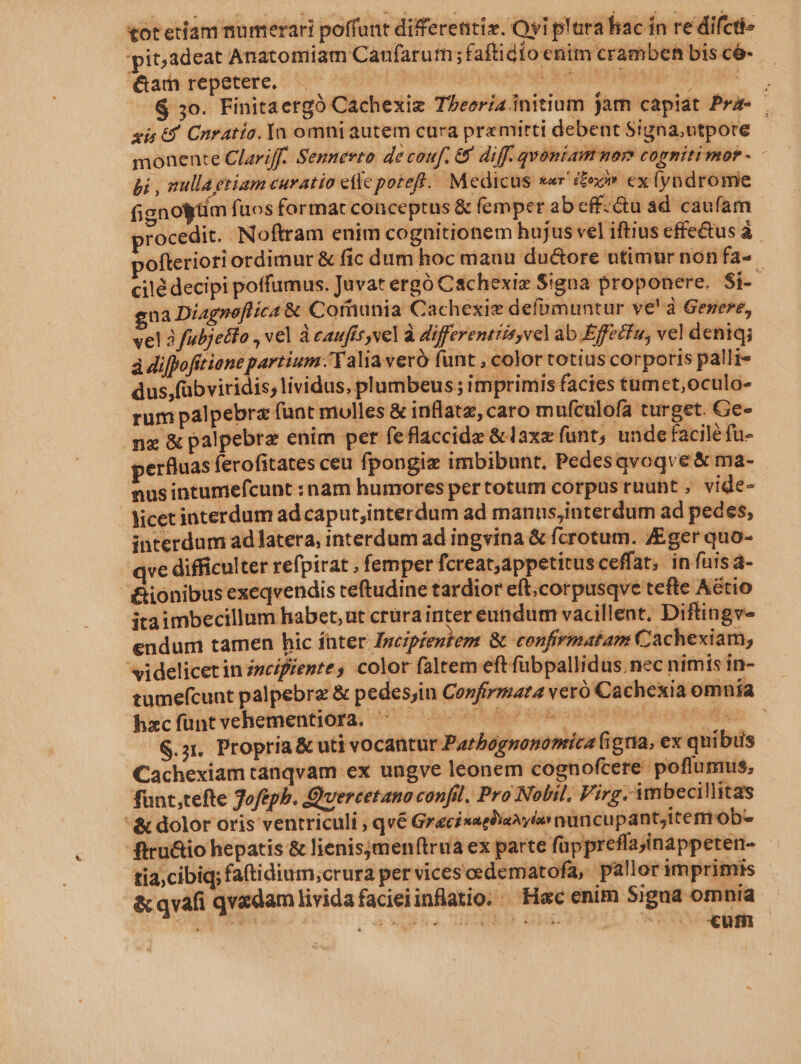 tot etiam numerari poſſunt differentiæ. Qvi plura hac in re diſcu-
pit, adeat Anatomiam Cauſarum; faſtidio enim cramben bis co-
ctam repetere.
§ 30. Finita ergò Cachexiæ Theoria initium jam capiat Pra-
xis & Curatio. In omni autem cura præmitti debent Signa, utpote
monente Clariſſ. Sennerto de conſ. & diſſ. qvoniam non cogniti mor-
bi, nulla etiam curatio eſſe poteſt. Medicus κατ' ἐξοχὴν ex ſyndrome
ſignorum ſuos format conceptus & ſemper ab effectu ad cauſam
procedit. Noſtram enim cognitionem hujus vel iſtius effectus à
poſteriori ordimur & ſic dum hoc manu ductore utimur non fa-
cilè decipi poſſumus. Juvat ergò Cachexiæ Signa proponere. Si-
gna Diagnoſtica & Com̃unia Cachexiæ deſumuntur vel à Genere,
vel à ſubjecto, vel à cauſis, vel à differentiis, vel ab Effectu, vel deniq;
à diſpoſitione partium. Talia verò ſunt, color totius corporis palli-
dus, ſubviridis, lividus, plumbeus; imprimis facies tumet, oculo-
rum palpebræ ſunt molles & inflatæ, caro muſculoſa turget. Ge-
næ & palpebræ enim per ſe flaccidæ & laxæ ſunt, unde facilè ſu-
perfluas ſeroſitates ceu ſpongiæ imbibunt. Pedes qvoqve & ma-
nus intumeſcunt: nam humores per totum corpus ruunt, vide-
licet interdum ad caput, interdum ad manus, interdum ad pedes,
interdum ad latera, interdum ad ingvina & ſcrotum. Æger quo-
qve difficulter reſpirat, ſemper ſcreat, appetitus ceſſat, in ſuis a-
ctionibus exeqvendis teſtudine tardior eſt, corpusqve teſte Aëtio
ita imbecillum habet, ut crura inter eundum vacillent. Diſtingv-
endum tamen hic inter Incipientem & confirmatam Cachexiam,
videlicet in incipiente, color ſaltem eſt ſubpallidus nec nimis in-
tumeſcunt palpebræ & pedes, in Confirmata verò Cachexia omnia
hæc ſunt vehementiora.
§. 31. Propria & uti vocantur Pathognonomica ſigna, ex quibus
Cachexiam tanqvam ex ungve leonem cognoſcere poſſumus,
ſunt, teſte Joſeph. Qvercetano conſil. Pro Nobil. Virg. imbecillitas
& dolor oris ventriculi, qvē Græci καρδιαλγίαν nuncupant, item ob-
ſtructio hepatis & lienis, menſtrua ex parte ſuppreſſa, inappeten-
tia, cibiq; faſtidium, crura per vices œdematoſa, pallor imprimis
& qvaſi qvædam livida faciei inflatio. Hæc enim Signa omnia
cum